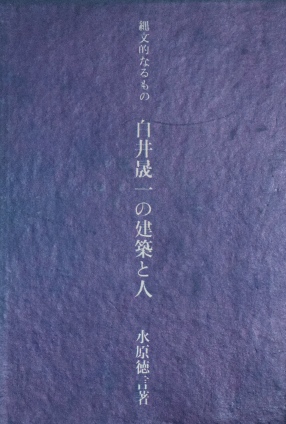 縄文的なるもの
白井晟一の建築と人
水原徳言著